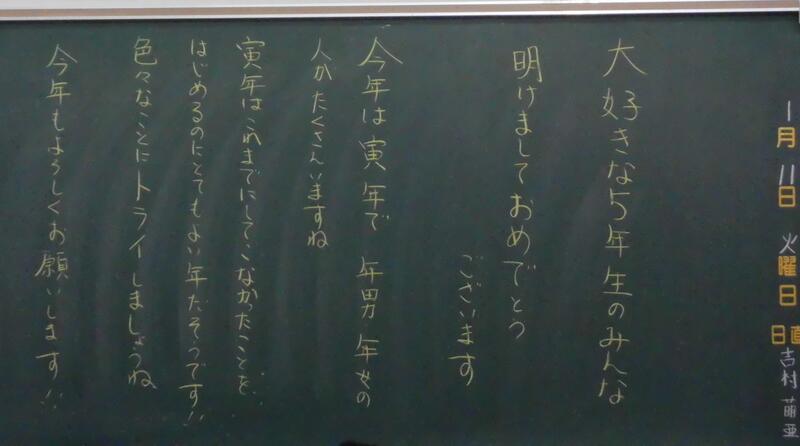 1月11日 火曜日
日直 吉村 萌亜
大好きな5年生のみんな
明けましておめでとう
ございます
今年は寅年で 年男 年女の
人がたくさんいますね
寅年はこれまでにしてこなかったことを、
はじめるのにとてもよい年だそうです!!
色々なことにトライしましょうね
今年もよろしくお願いします!!